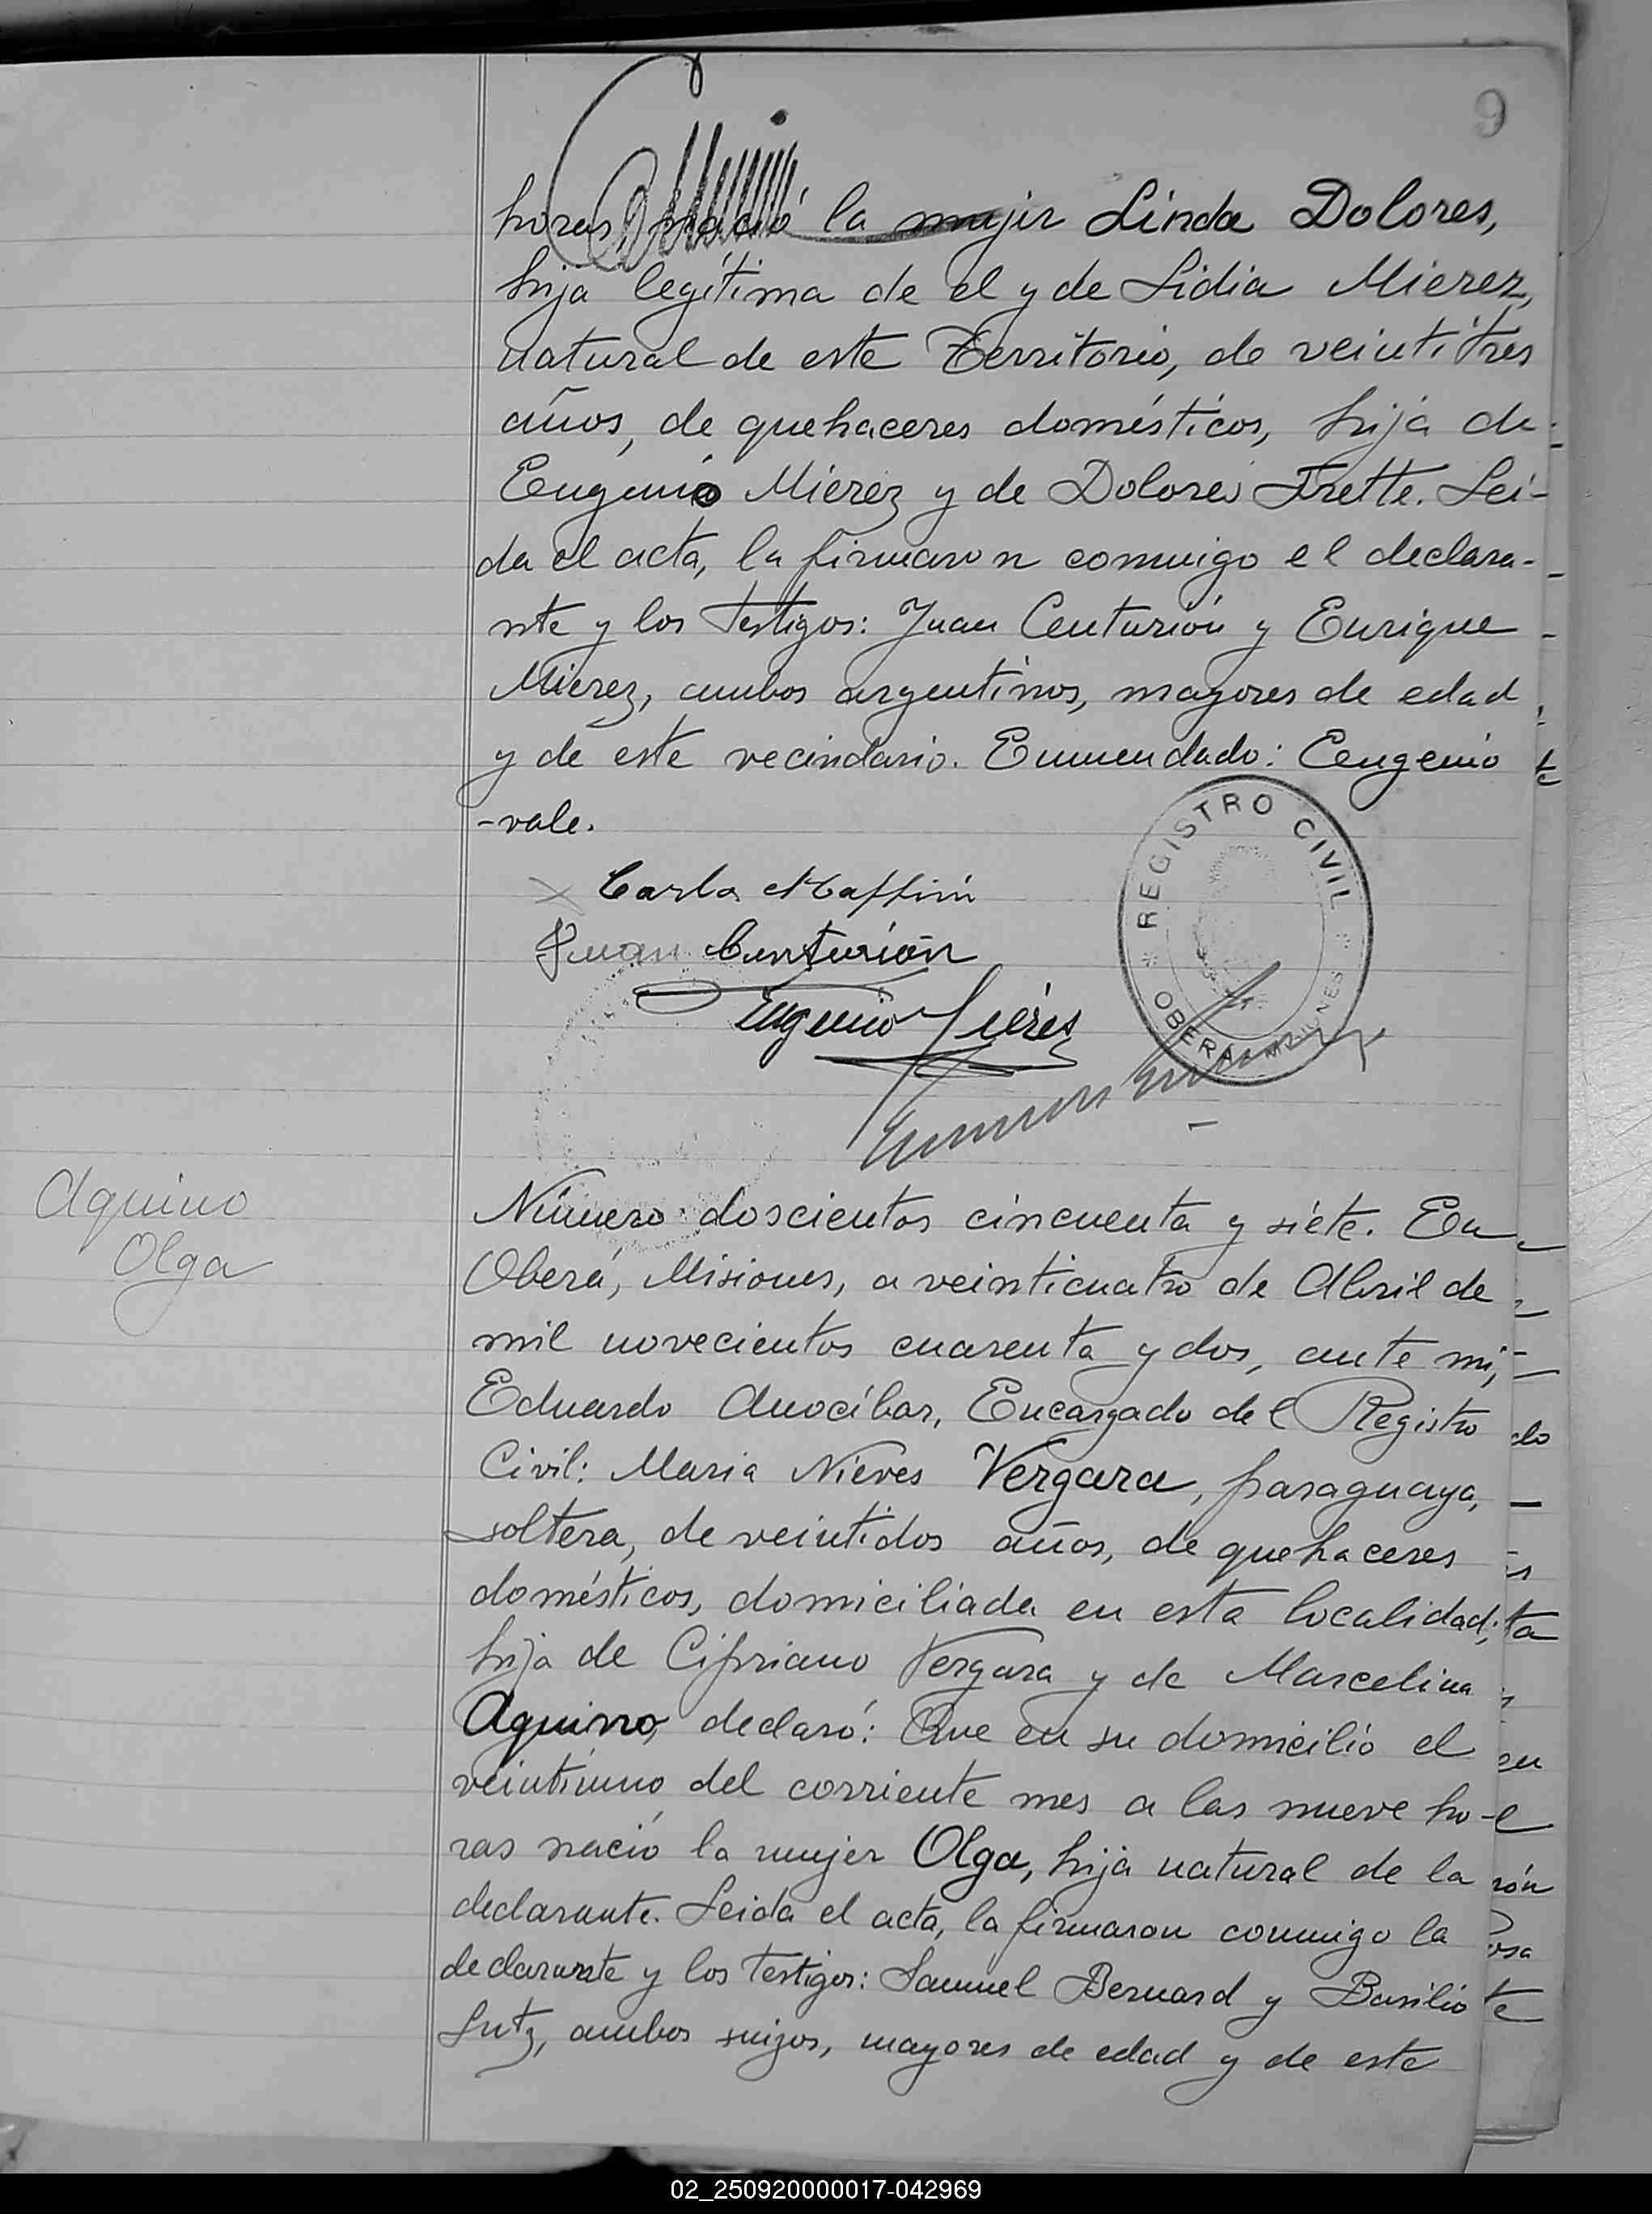 9
horas, nació la mujer Linda Dolores,
hija legítima de el y de Lidia Mierez,
natural de este Territorio, de veintitres
años, de quehaceres domésticos, hija de
Eugenio Mierez y de Dolores Frette. Leí-
da el acta, la firmaron conmigo el declara-
nte y los testigos: Juan Centurión y Enrique
Mierez, ambos argentinos, mayores de edad
y de este vecindario. Enmendado: Eugenio
-vale.
Juan Centurión
Eugenio Mierés
REGISTRO CIVIL
OBERA MISIONES
Aquino
Olga
Número doscientos cincuenta y siete. En
Oberá, Misiones, a veinticuatro de Abril de
mil novecientos cuarenta y dos, ante mi,
Eduardo Anocíbar, Encargado del Registro
Civil: Maria Nieves Vergara, paraguaya,
soltera, de veintidos años, de quehaceres
domésticos, domiciliada en esta localidad,
hija de Cipriano Vergara y de Marcelina
Aquino, declaró: Que en su domicilio el
veintiuno del corriente mes a las nueve ho-
ras nació la mujer Olga, hija natural de la
declarante. Leida el acta, la firmaron conmigo la
declarante y los testigos: Samuel Bernard y Basilio
Lutz, ambos suizos, mayores de edad y de este
02_250920000017-042969